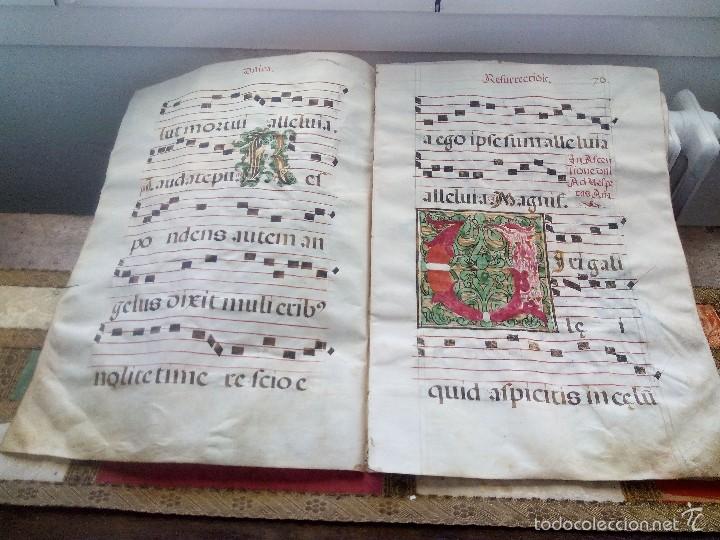 Dnica.
lut mortui alleluia.
Laudate pu R ei
po ndens autem an
gelus dixit mulierib⁹
nolite time re scio e
Resurrectiōīs. 76.
a ego ipse sum alleluia
In Ascen
tione dni
Ad Vesp
alleluia Magnif.
V Iri gali
le i
quid aspicitis in celū
todocoleccion.net